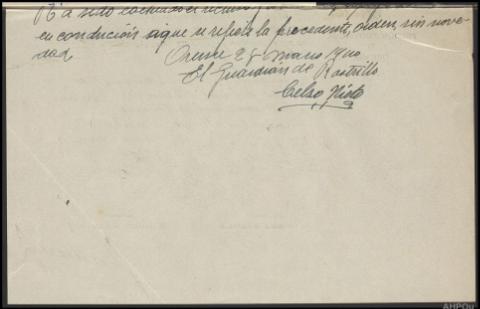 a sido
en condución a que se refiere la precedente, orden, sin nove-
dad,
Orense 29 marzo 940
El Guardián de Rastrillo
Celso Nieto
AHPOu